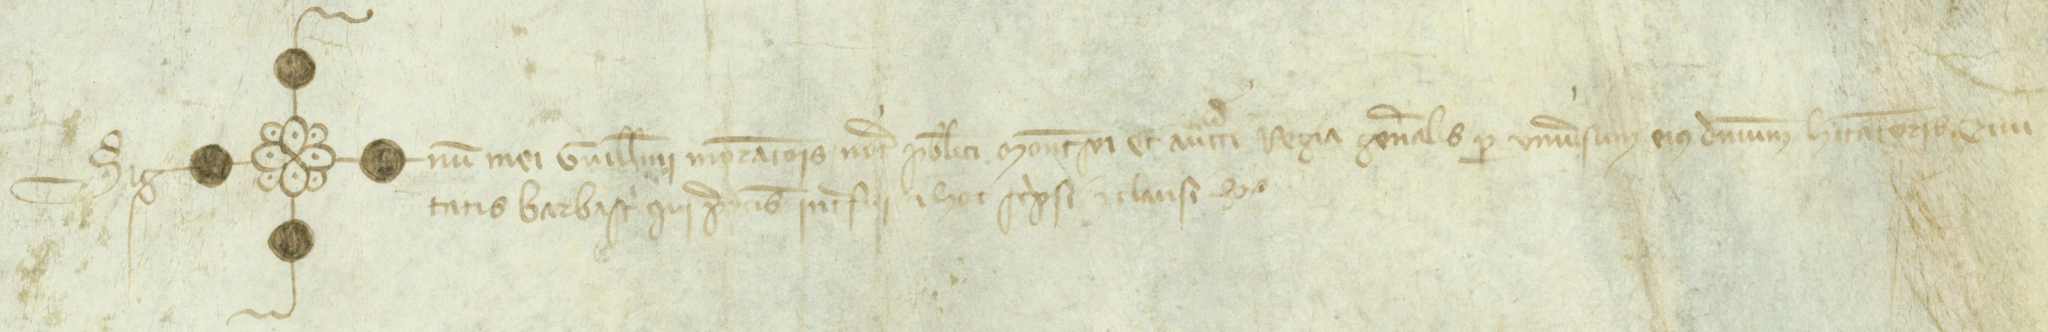 Sig num mei Guillmi moratois not publici Montss et auctte Regia genals per univsum eius dnium hitatoris Civi
tatis barbastri qui pdcis intfui i hoc scpsi et clausi